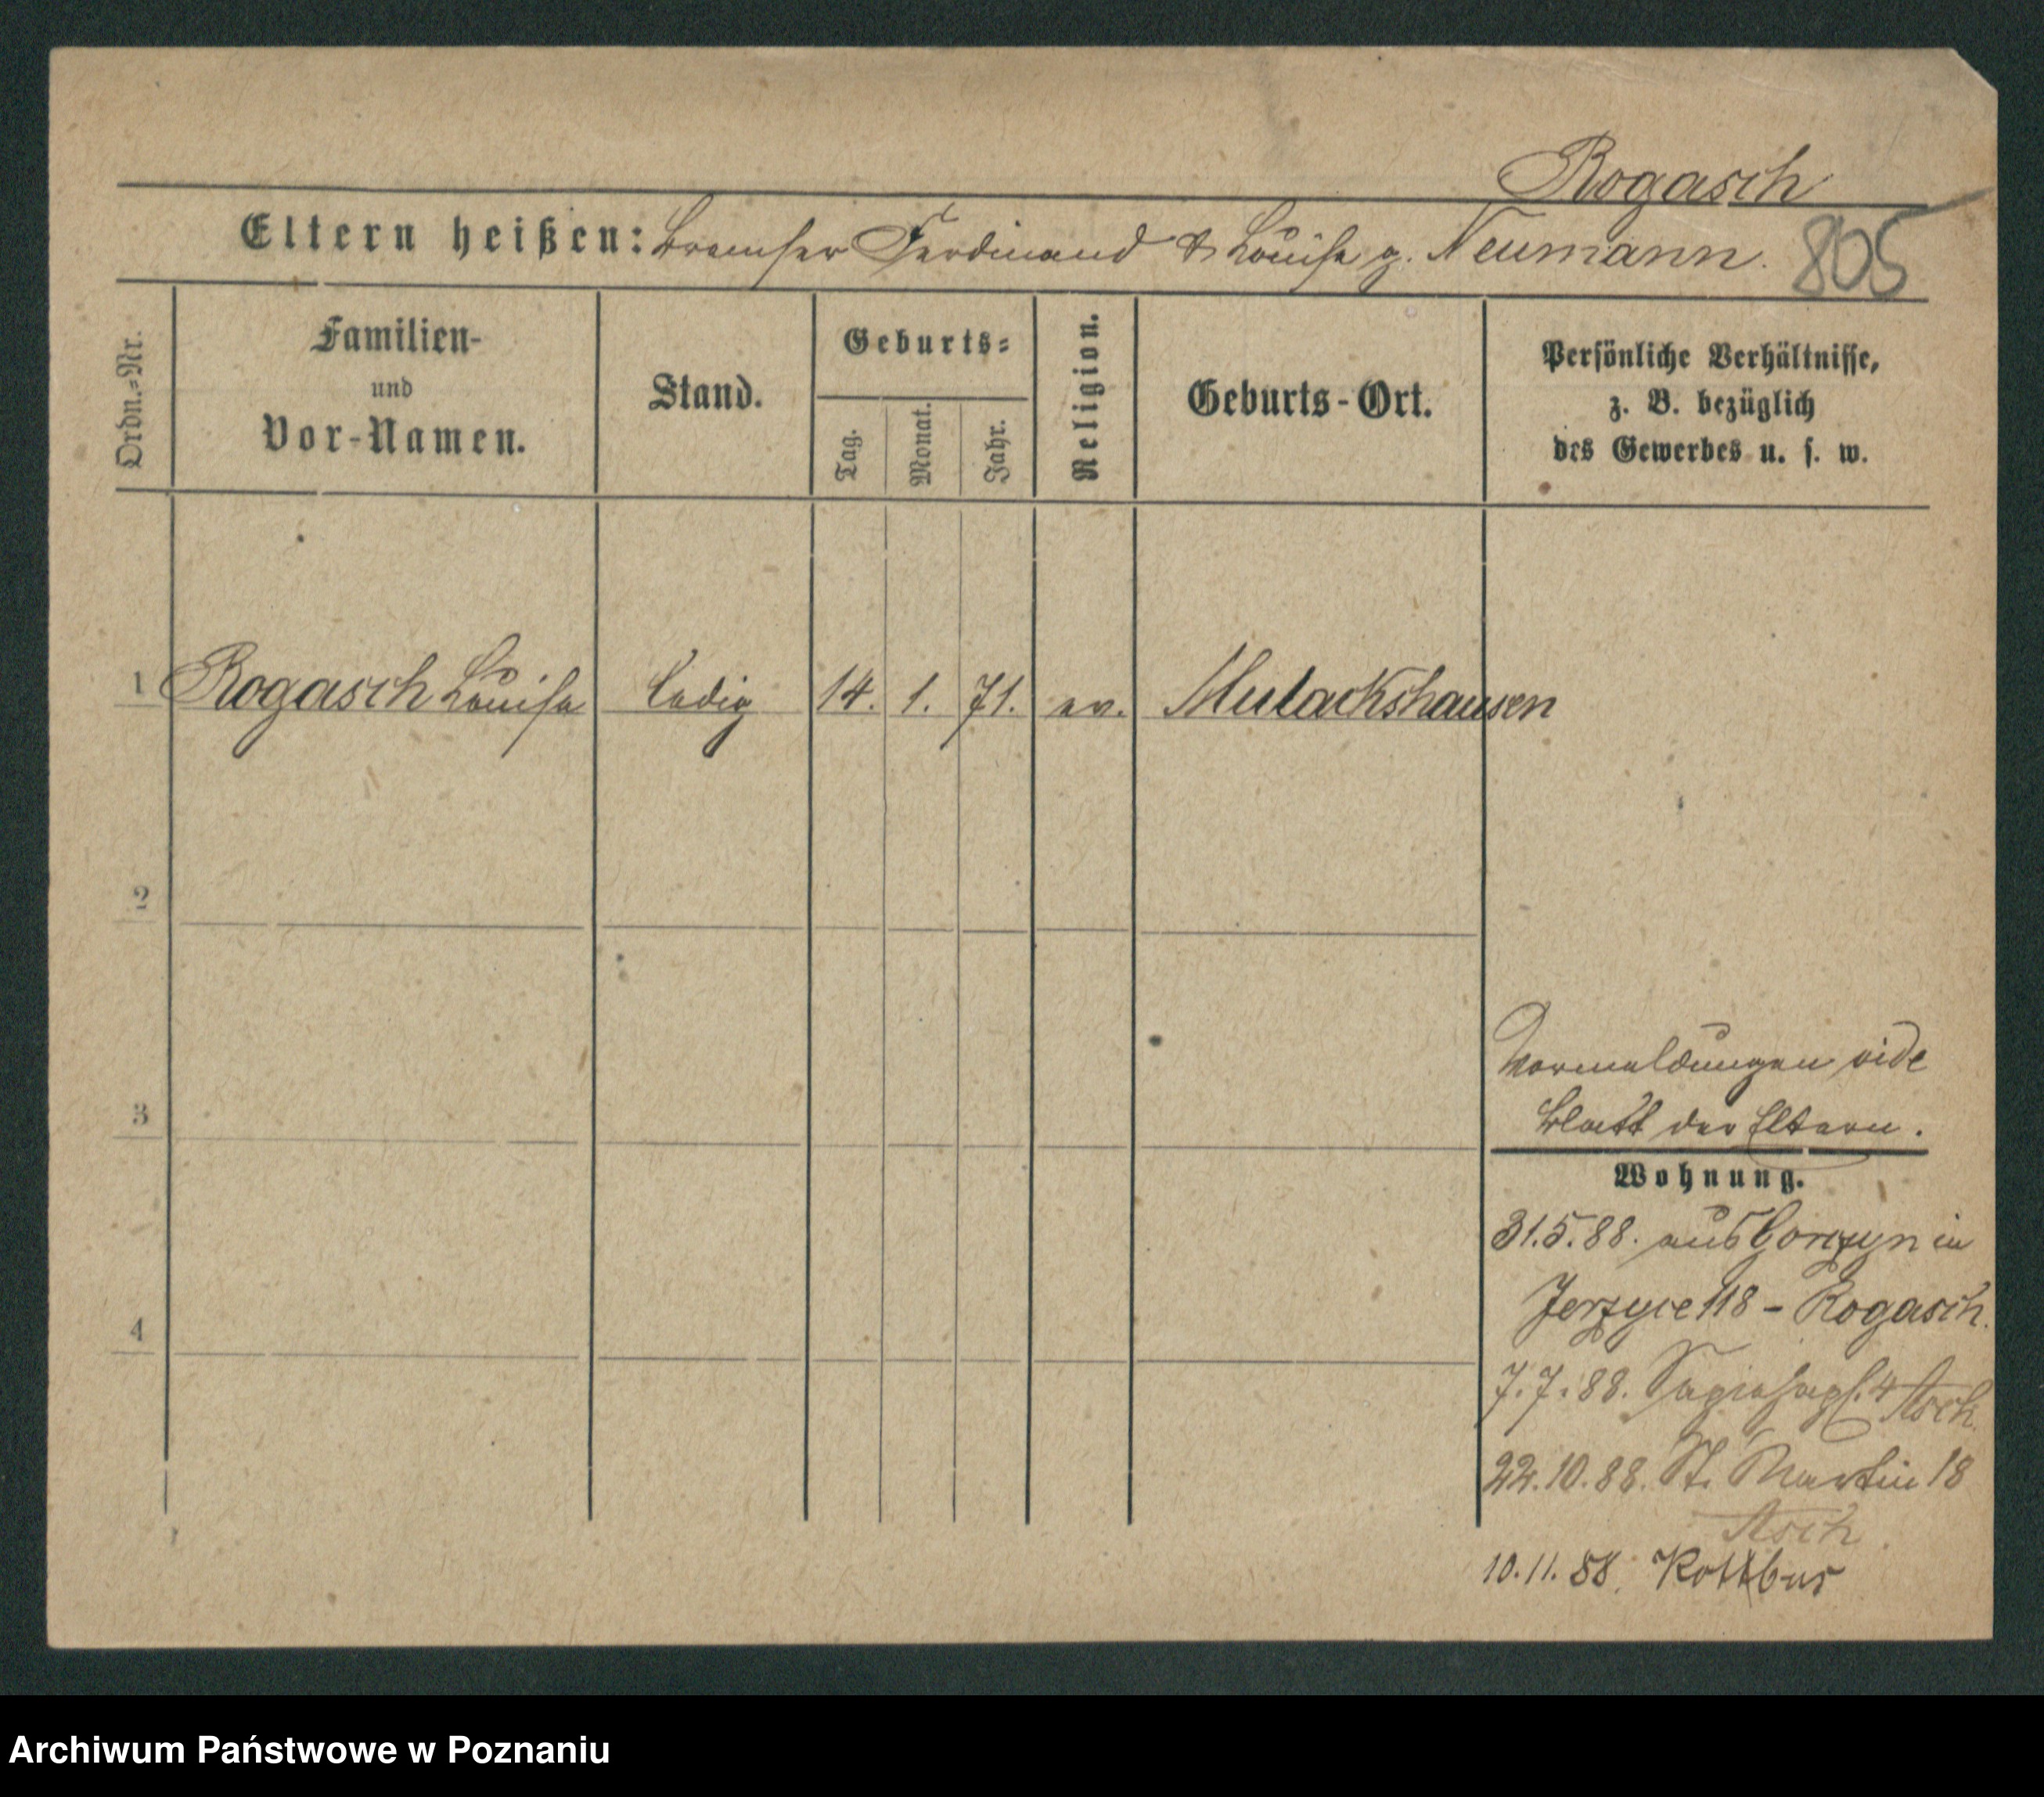 Rogasch
Eltern heißen: Bremser Ferdinand & Louise g. Neumann.
805
Ordn.=Nr.
Familien-
und
Vor-Namen.
Stand.
Geburts=
Tag.
Monat.
Jahr.
Religion.
Geburts-Ort.
Persönliche Verhältnisse,
z. B. bezüglich
des Gewerbes u. s. w.
1 Rogasch Louise ledig 14. 1. 71. ev. Mulackshausen
2
3
4
Vormeldungen vide
Blatt der Eltern.
Wohnung.
31.5.88. aus Gorzyn in
Jerzyce 118 – Rogasch.
7.7.88. 4 Asch
22.10.88. St. Martin 18
Asch
10.11.88. Kottbus
Archiwum Państwowe w Poznaniu